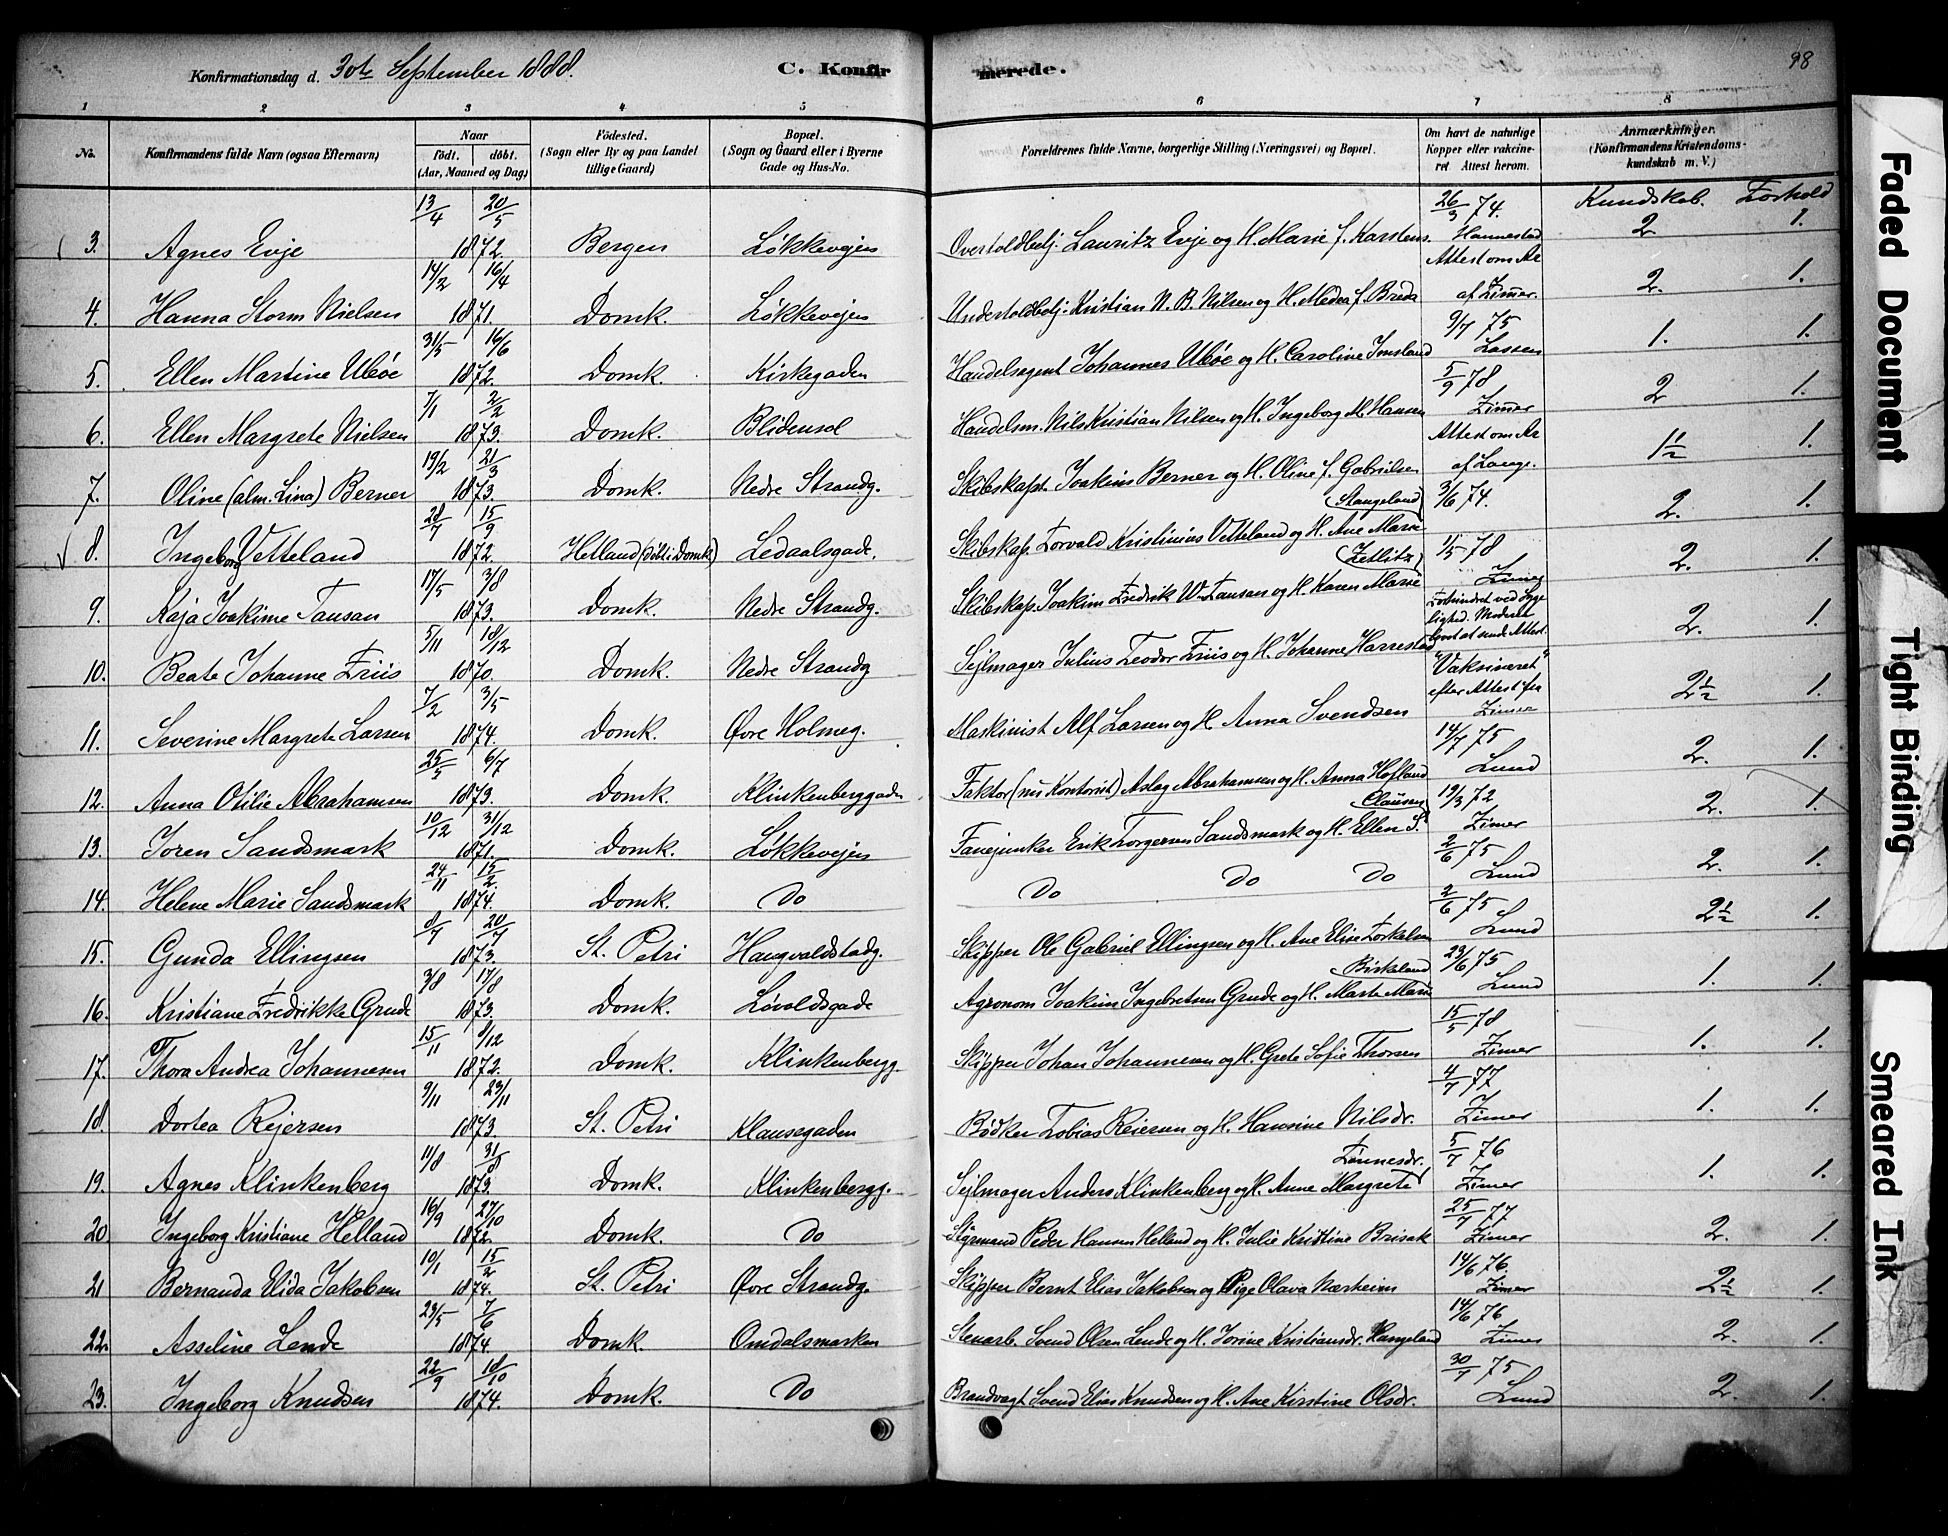 Konfirmationsdag d. 30te September 1888. C. Konfirmerede. 98
1 2 3 4 5 6 7 8
No. Konfirmandens fulde Navn (ogsaa Efternavn) Naar født. døbt. (Aar, Maaned og Dag) Fødested. (Sogn eller By og paa Landet tillige Gaard) Bopæl. (Sogn og Gaard eller i Byerne Gade og Hus-No. Forældrenes fulde Navne, borgerlige Stilling (Næringsvei) og Bopæl. Om havt de naturlige Kopper eller vakcineret Attest herom. Anmærkninger. (Konfirmandens Kristendomskundskab m. V.)
Kundskab. Forhold
3. Agnes Evje 13/4 20/5 1872. Bergen Løkkevejen Overtoldbetj. Lauritz Evje og H. Marie f. Karstens. 26/3 74. Hannestad 2 1.
4. Hanna Storm Nielsen 14/2 16/4 1871. Domk. Løkkevejen Undertoldbetj. Kristian N. B. Nilsen og H. Medea f. Breda Attest om Ar af Zimer. 2. 1.
5. Ellen Martine Ubøe 31/5 16/6 1872. Domk. Kirkegaden Handelsagent Johannes Ubøe og H. Caroline Imsland 9/7 75 Lassen 1. 1.
6. Ellen Margrete Nielsen 7/1 2/2 1873. Domk. Blidensol Handelsm. Nils Kristian Nilsen og H. Ingeborg M. Hansen 5/9 78 Zimer 2 1.
7. Oline (alm. Lina) Berner 19/2 21/3 1873. Domk. Nedre Strandg. Skibskapt. Joakim Berner og H. Oline f. Gabrielsen Attest om Ar af Lange. 1½ 1.
8. Ingeborg Vetteland 28/7 15/9 1872. Helland (døbt i Domk) Ledaalsgade. Skibskap. Torvald Kristinius Vetteland og H. Ane Marie (Stangeland) 3/6 74. 2. 1.
9. Kaja Joakime Tausan 17/5 3/8 1873. Domk. Nedre Strandg. Skibskap. Joakim Fredrik W. Tausan og H. Karen Marie (Zetlitz) 1/5 78 Zimer 2. 1.
10. Beate Johanne Friis 5/11 18/12 1870. Domk. Nedre Strandg Sejlmager Julius Teodor Friis og H. Johanne Harrestad Forhindret ved Syge lighed. Moderen lovet at sende Attest. 2. 1.
11. Severine Margrete Larsen 7/2 3/5 1874. Domk. Øvre Holmeg. Maskinist Alf Larsen og H. Anna Svendsen "Vaksineret" efter Attest fra Zimer 2½ 1.
12. Anna Otilie Abrahamsen 25/5 6/7 1873. Domk. Klinkenberggaden Faktor (nu Kontorist) Aslag Abrahamsen og H. Anna Hofland 14/7 75 Lund 2. 1.
13. Toren Sandsmark 10/12 31/12 1871. Domk. Løkkevejen Fanejunker Erik Torgersen Sandsmark og H. Ellen S. (Clausen) 19/3 72 Zimer 2. 1.
14. Helene Marie Sandsmark 24/11 15/2. 1874. Domk. Do Do Do Do 2/6 75 Lund 2. 1.
15. Gunda Ellingsen 8/7 20/7 1873. St. Petri Haugvaldstadg. Skipper Ole Gabriel Ellingsen og H. Ane Elise Torkelsen 2/6 75 Lund 2½ 1.
16. Kristiane Fredrikke Grude 3/8 17/8 1873. Domk. Løvoldsgade Agronom Joakim Ingebretsen Grude og H. Marte Marie (Birkeland 23/6 75 Lund 1. 1.
17. Thora Andrea Johannesen 15/11 8/12 1872. Domk. Klinkenbergg. Skipper Johan Johannesen og H. Grete Sofie Thorsen 15/5 78 Zimer 1. 1.
18. Dortea Rejersen 9/11 23/11 1873 St. Petri Klausegaden Bødker Tobias Reiersen og H. Hansine Nilsdr. 4/7 77 Zimer 1. 1.
19. Agnes Klinkenberg 11/8 31/8 1873. Domk. Klinkenbergg. Sejlmager Anders Klinkenberg og H. Anne Margrete Tønnesdr. 5/7 76 Zimer 1. 1.
20. Ingeborg Kristiane Helland 16/9 27/10 1872. Domk. Do Styrmand Peder Hansen Helland og H. Julie Kristine Brisak 25/7 77 Zimer 2. 1.
21 Bernanda Elida Jakobsen 10/1 15/2 1874. St. Petri Øvre Strandg. Skipper Bernt Elias Jakobsen og Pige Olava Nærheim 14/6 76. Zimer 2½ 1.
22. Asseline Lende 23/5 7/6 1874. Domk. Omdalsmarken Stenarb. Svend Olsen Lende og H. Jorine Kristiansdr. Haugeland 14/6 76 Zimer 2. 1.
23. Ingeborg Knudsen 22/9 18/10 1874. Domk. Do Brandvagt Svend Elias Knudsen og H. Ane Kirstine Olsdr. 30/7 75 Lund 2. 1.
Faded Document
Tight Binding
Smeared Ink